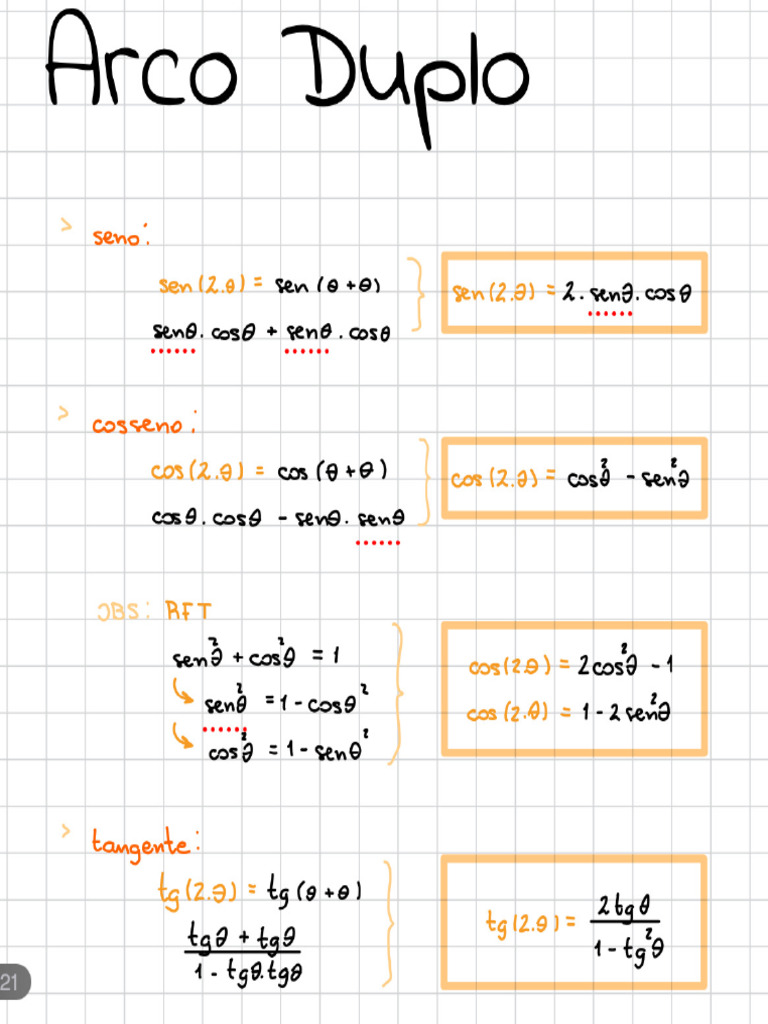 Arco Duplo
> seno:
sen(2.θ) = sen (θ+θ)
senθ.cosθ + senθ.cosθ
sen(2.θ) = 2.senθ.cosθ
> cosseno:
cos(2.θ) = cos (θ+θ)
cosθ.cosθ - senθ.senθ
cos(2.θ) = cos²θ - sen²θ
OBS: RFT
sen²θ + cos²θ = 1
sen²θ = 1 - cosθ²
cos²θ = 1 - senθ²
cos(2.θ) = 2cos²θ - 1
cos(2.θ) = 1 - 2sen²θ
> tangente:
tg(2.θ) = tg(θ+θ)
tgθ + tgθ
1 - tgθ.tgθ
tg(2.θ) = 2tgθ
1 - tg²θ
21